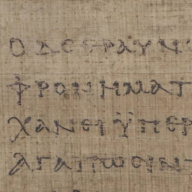 ΟΔΕΕΡΑΥΝ
ΦΡΟΝΗΜΑΤ
ΧΑΝΕΙΫΠΕΡ
ΑΓΑΠΩΟΙΝ